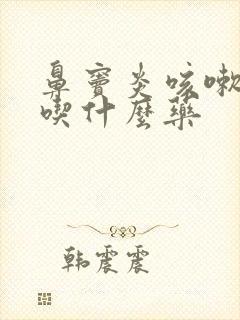 鼻窦炎咳嗽
喫什麼藥
韩震震